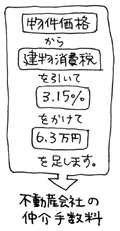 物件価格
から
建物消費税
を引いて
3.15%
をかけて
6.3万円
を足します。
不動産会社の
仲介手数料